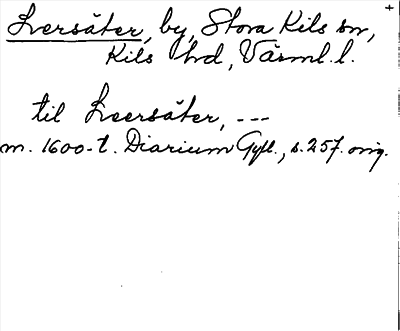 Liersäter, by, Stora Kils sn,
Kils hd, Värml. l.
til Lieersäter, ---
m. 1600-t. Diarium Gyll., s. 257. orig.